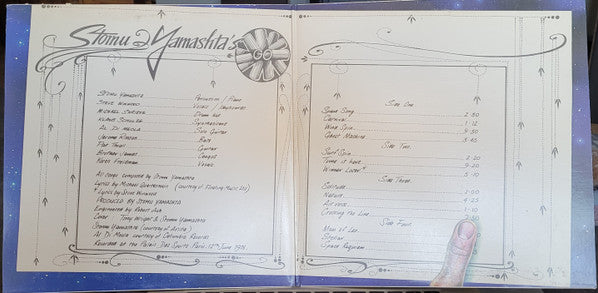 Stomu Yamashta's
GO
Stomu Yamashta Percussion / Piano
Steve Winwood Vocals / Keyboards
Michael Shrieve Drum Kit
Klaus Schulze Synthesizers
Al Di Meola Solo Guitar
Jerome Rimson Bass
Pat Thrall Guitar
Brother James Congas
Karen Friedman Vocal
All songs composed by Stomu Yamashta
Lyrics by Michael Quartermain (courtesy of
* Lyrics by Steve Winwood
Produced by Stomu Yamashta
Engineered by Robert Ash
Cover Tony Wright & Stomu Yamashta
Stomu Yamashta (courtesy of Arista)
Al Di Meola courtesy of Columbia Records
Recorded at the Palais Des Sports Paris 12th June 1976
Side One.
Space Song 2·30
Carnival 1·12
Wind Spin 9·30
Ghost Machine 3·45
Side Two.
Surf Spin 2·20
Time is here 9·20
Winner Loser* 5·10
Side Three.
Solitude
Nature
Air voice 1·10
Crossing the Line
Side Four.
Man of Leo
Stellar
Space Requiem